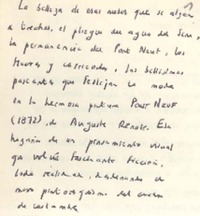 La belleza de esas nubes que se alzan
a brochas, el pliegue del agua del Sena,
la permanencia del Pont Neuf, los
fiacres y carricoches, las bellísimas
paseantes que reflejan la moda
en la hermosa pintura PONT NEUF
(1872), de Auguste Renoir. Esa
hazaña de un pensamiento visual
ya volvió fascinante ficción.
todo realismo,
nuevo pintoresquismo del
de costumbre